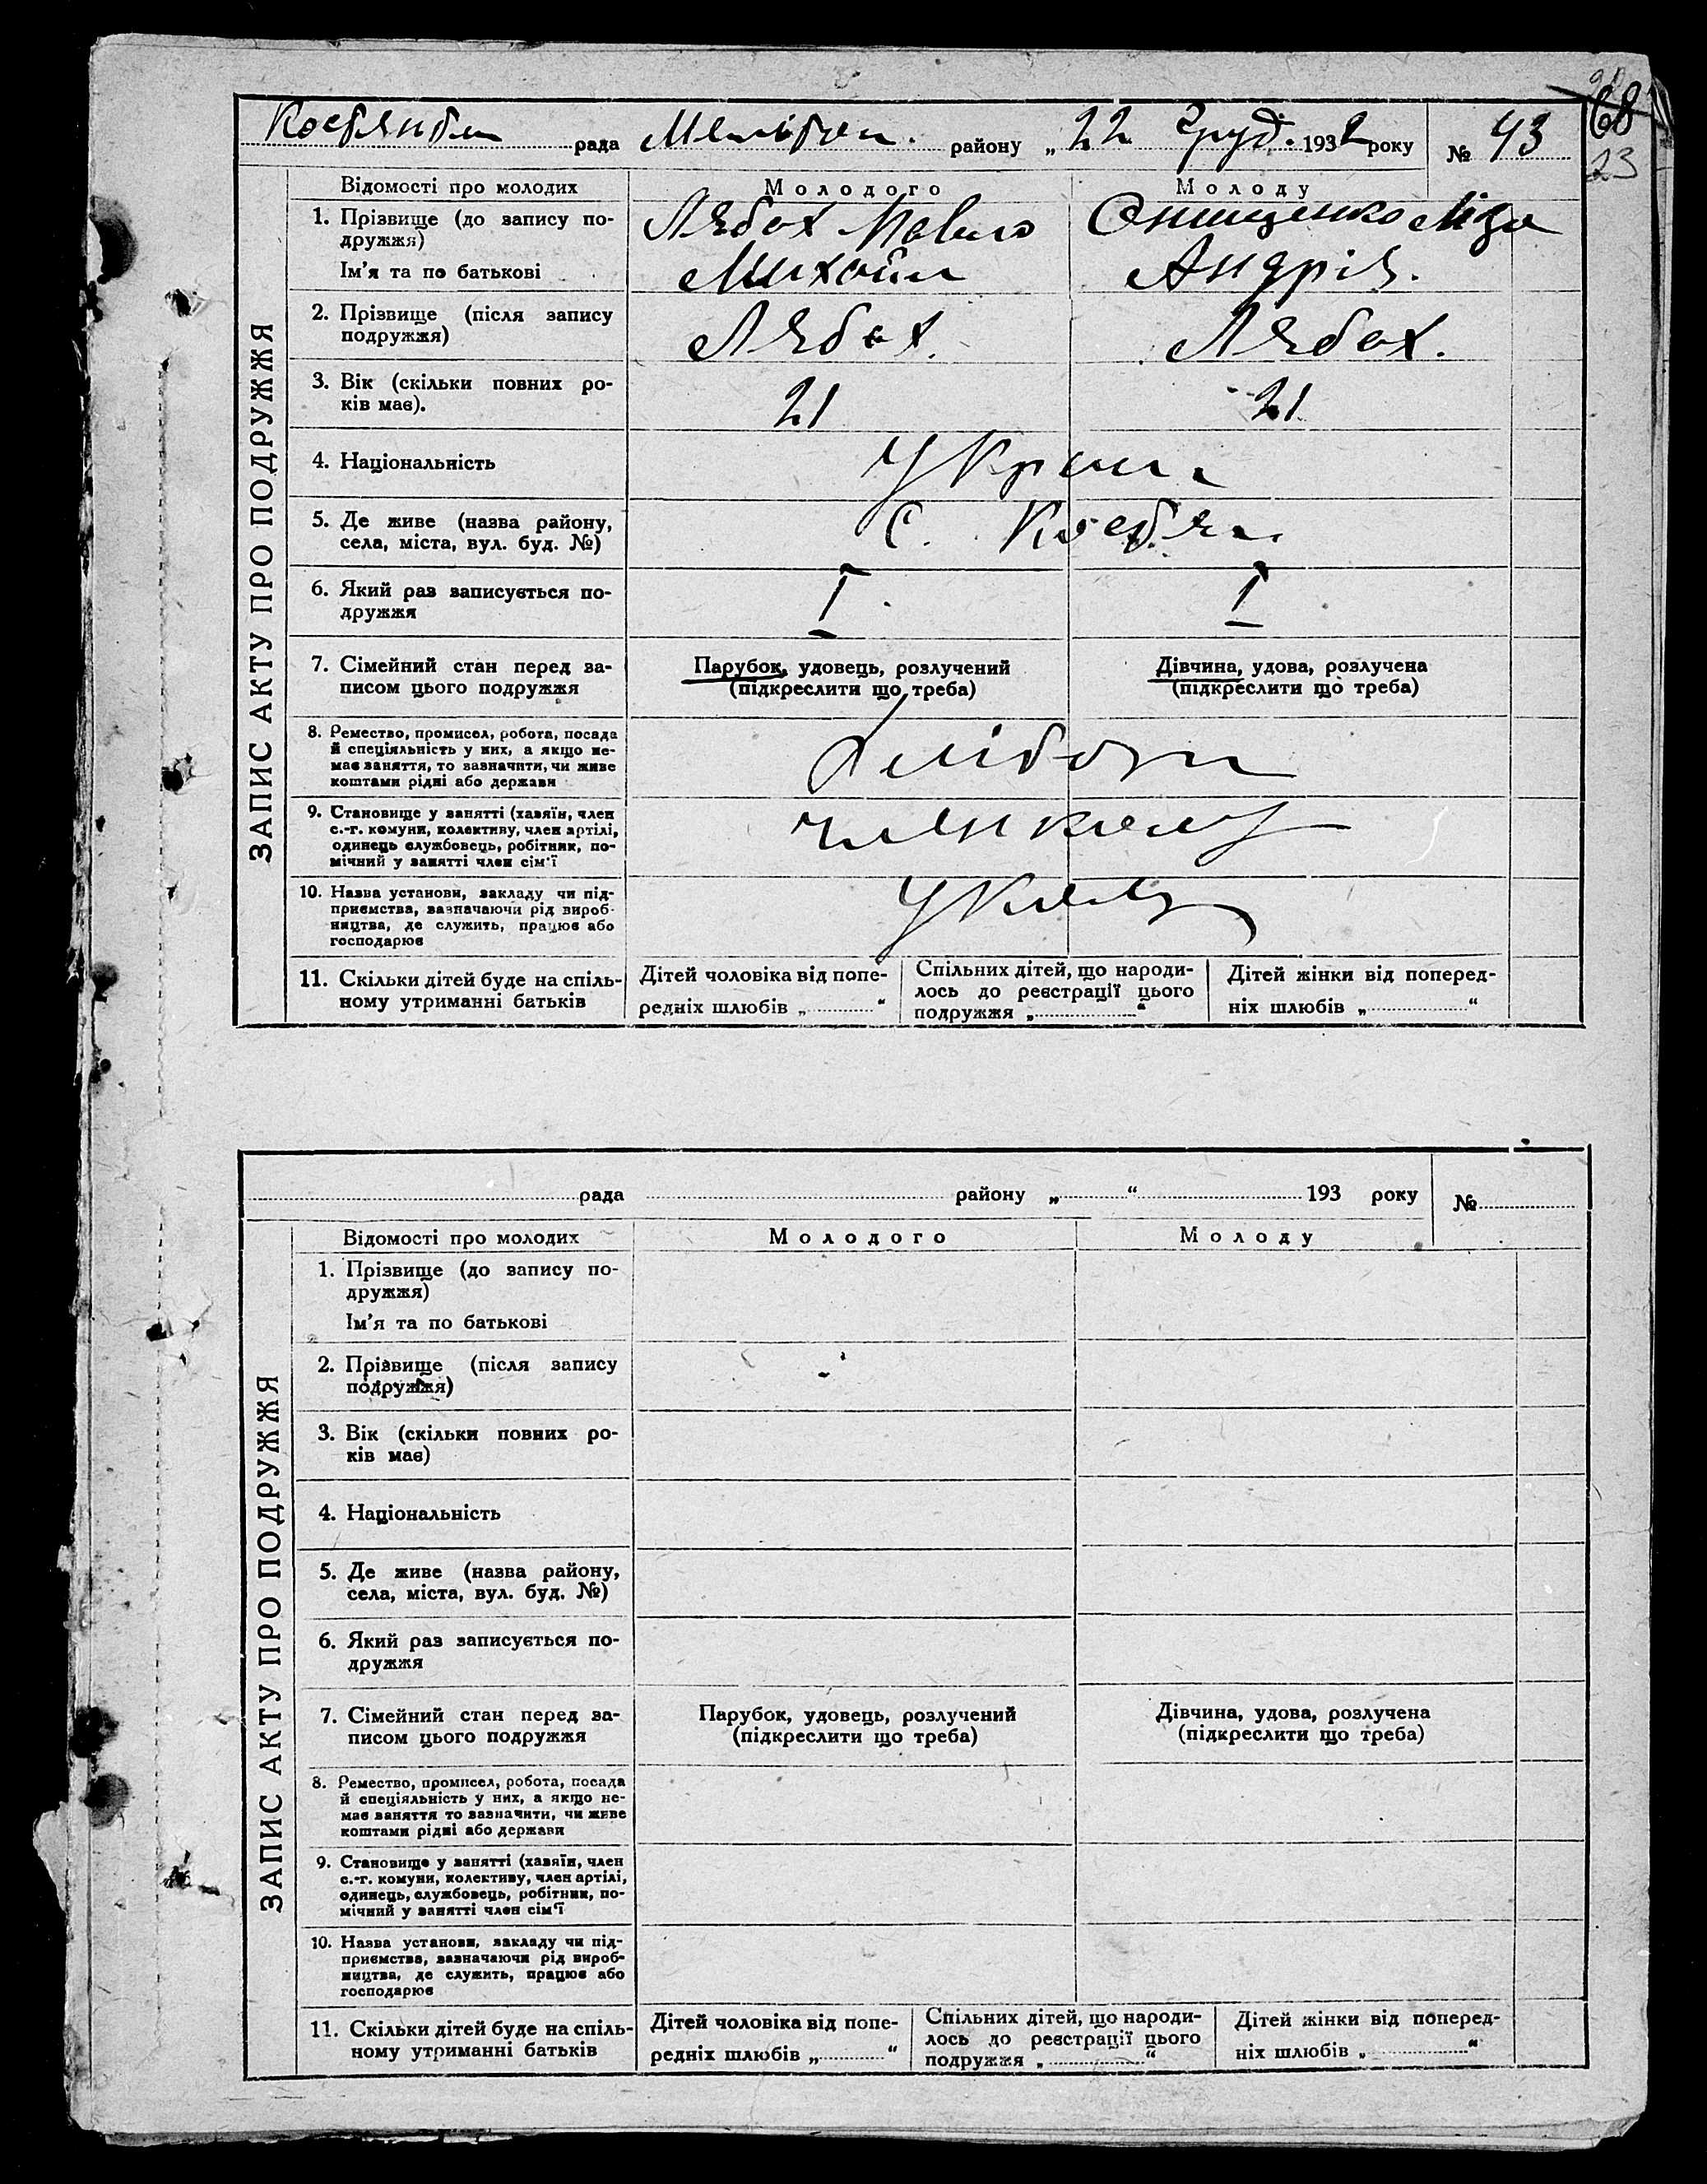 68
23
рада района „ 22 груд. 1932 року № 43
ЗАПИС АКТУ ПРО ПОДРУЖЖЯ
Відомості про молодих Молодого Молоду
1. Прізвище (до запису по- Лябах Павло Онищенко Ліза
дружжя)
Ім'я та по батькові Михайл Андрія.
2. Прізвище (після запису Лябах. Лябах.
подружжя)
3. Вік (скільки повних ро- 21 21
ків має).
4. Національність Україн
5. Де живе (назва району, С.
села, міста, вул. буд. №)
6. Який раз записується по- I I
дружжя
7. Сімейний стан перед за- Парубок, удовець, розлучений Дівчина, удова, розлучена
писом цього подружжя (підкреслити що треба) (підкреслити що треба)
8. Ремество, промисел, робота, посада
й спеціяльність у них, а якщо не-
має заняття, то зазначити, чи живе
коштами рідні або держави
9. Становище у занятті (хазяїн, член
с.-г. комуни, колективу, член артілі,
одинець службовець, робітник, по-
мічний у занятті член сім'ї
10. Назва установи, закладу чи під-
приємства, зазначаючи рід вироб-
ництва, де служить, працює або
господарює
11. Скільки дітей буде на спіль- Дітей чоловіка від попе- Спільних дітей, що народи- Дітей жінки від поперед-
ному утриманні батьків редніх шлюбів „ “ лось до реєстрації цього ніх шлюбів „ “
подружжя „ “
рада району „ “ 193 року №
ЗАПИС АКТУ ПРО ПОДРУЖЖЯ
Відомості про молодих Молодого Молоду
1. Прізвище (до запису по-
дружжя)
Ім'я та по батькові
2. Прізвище (після запису
подружжя)
3. Вік (скільки повних ро-
ків має)
4. Національність
5. Де живе (назва району,
села, міста, вул. буд. №)
6. Який раз записується по-
дружжя
7. Сімейний стан перед за- Парубок, удовець, розлучений Дівчина, удова, розлучена
писом цього подружжя (підкреслити що треба) (підкреслити що треба)
8. Ремество, промисел, робота, посада
й спеціяльність у них, а якщо не-
має заняття то зазначити, чи живе
коштами рідні або держави
9. Становище у занятті (хазяїн, член
с.-г. комуни, колективу, член артілі,
одинець, службовець, робітник, по-
мічний у занятті член сім'ї
10. Назва установи, закладу чи під-
приємства, зазначаючи рід вироб-
ництва, де служить, працює або
господарює
11. Скільки дітей буде на спіль- Дітей чоловіка від попе- Спільних дітей, що народи- Дітей жінки від поперед-
ному утриманні батьків редніх шлюбів „ “ лось до реєстрації цього ніх шлюбів „ “
подружжя „ “